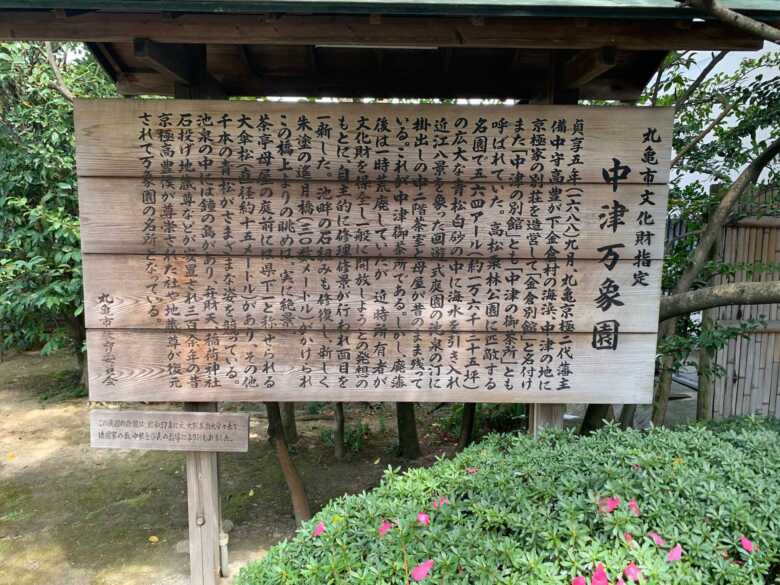 丸亀市文化財指定
中津万象園
貞享五年(一六八八)九月、丸亀京極二代藩主
備中守高豊が下金倉村の海浜、中津の地に
京極家の別荘を造営して「金倉別館」と名付け
また「中津の別館」とも「中津の御茶所」とも
呼ばれていた。高松栗林公園に匹敵する
名園で五六四アール(約一万六千二十五坪)
の広大な青松白砂の中に海水を引き入れ
近江八景を象った回遊式庭園の池泉の汀に
掛出しの中二階茶室と母屋が昔のまま残って
いる。これが中津御茶所である。しかし、廃藩
後は一時荒廃していたが、近時所有者が
文化財を保全し一般に開放しようとの発想の
もとに、自主的に修理修景が行われ面目を
一新した。池畔の石組みも修復し、新しく
朱塗の邀月橋(三〇数メートル)がかけられ
この橋上よりの眺めは、実に絶景
茶亭母屋の庭前には「県下一」と称せられる
大傘松(直径約十五メートル)があり、その他
千本の青松がさまざまな姿を競っている。
池泉の中には鐘の島があり、弁財天、稲荷神社
石投げ地蔵尊などが安置され三百余年の昔
京極高豊侯が尊崇された社や地蔵尊が復元
されて万象園の名所となっている。
丸亀市教育委員会